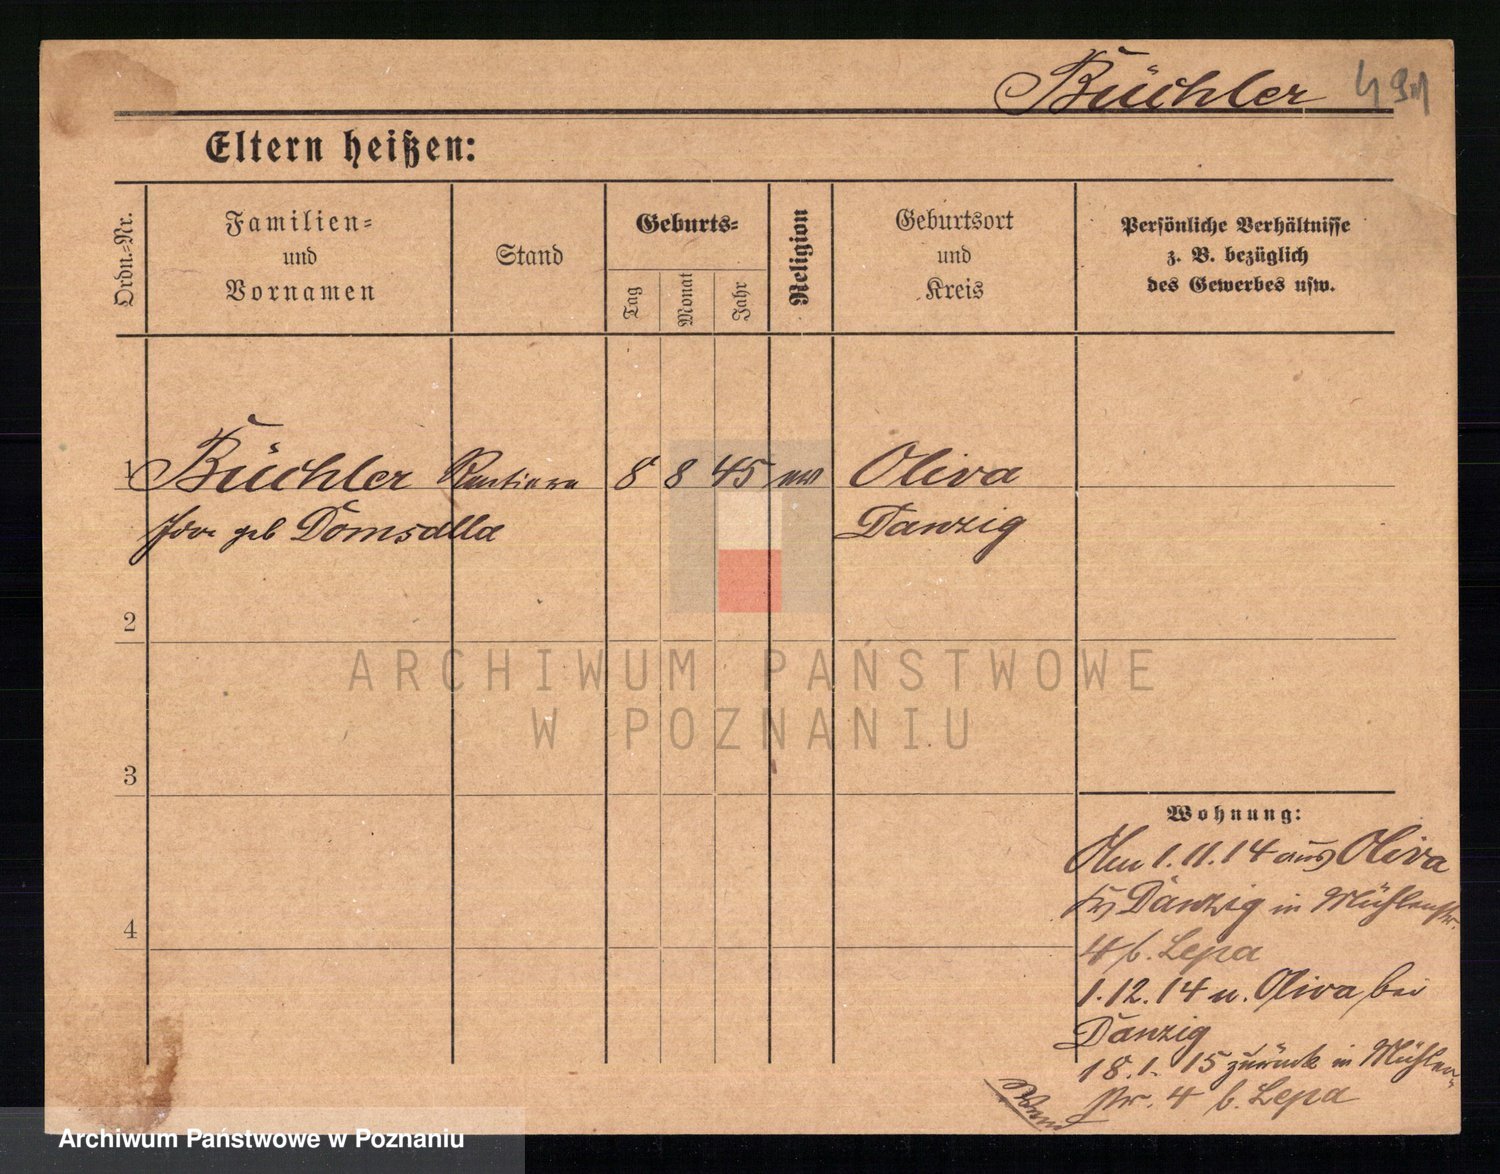 Büchler
Eltern heißen:
Ordn.=Nr.
Familien=
und
Vornamen
Stand
Geburts=
Tag
Monat
Jahr
Religion
Geburtsort
und
Kreis
Persönliche Verhältnisse
z. B. bezüglich
des Gewerbes usw.
1 Büchler Rentiere 8 8 45 ev Oliva
geb Domsalla Danzig
2
3
4
Wohnung:
Am 1.11.14 aus Oliva
Danzig in Mühlenstr.
4 b. Lepa
1.12.14 n. Oliva bei
Danzig
18.1.15 zurück in Mühlen=
str. 4 b. Lepa
ARCHIWUM PAŃSTWOWE
W POZNANIU
Archiwum Państwowe w Poznaniu